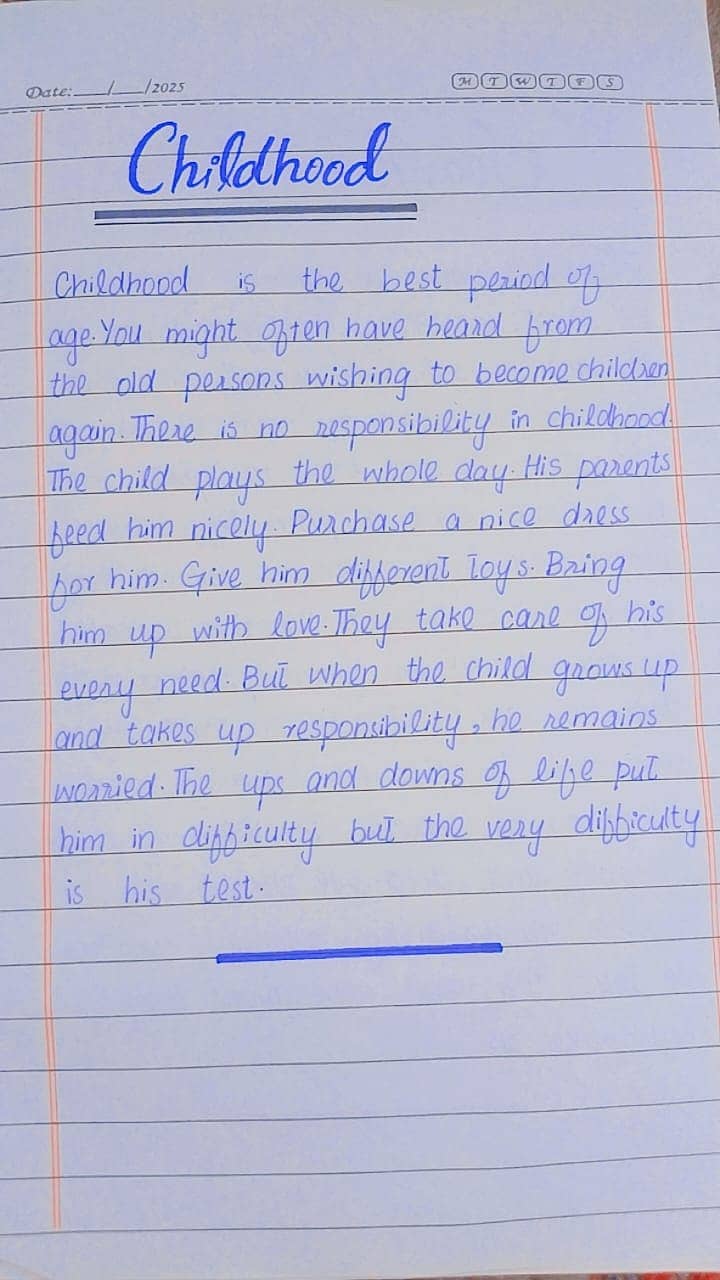 Date:___/___/2025 M T W T F S
Childhood
Childhood is the best period of
age. You might often have heard from
the old persons wishing to become children
again. There is no responsibility in childhood.
The child plays the whole day. His parents
feed him nicely. Purchase a nice dress
for him. Give him different Toys. Bring
him up with love. They take care of his
every need. But when the child grows up
and takes up responsibility, he remains
worried. The ups and downs of life put
him in difficulty but the very difficulty
is his test.